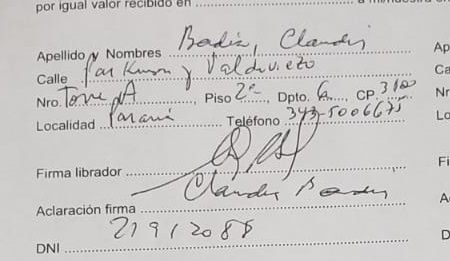 por igual valor recibido en
Apellido y Nombres Badía, Claudia
Calle Parkinson y Valdivieso
Nro. Torre A Piso 2º Dpto. C CP. 3100
Localidad Paraná Teléfono 343-5006675
Firma librador
Aclaración firma Claudia
DNI 21912088
Ap
Ca
Nr
Lo
Fi
A
D